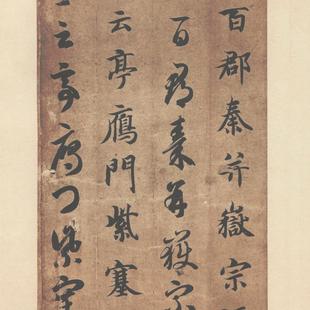 百郡秦并嶽宗
百郡秦并嶽宗
云亭鴈門紫塞
云亭鴈門紫塞